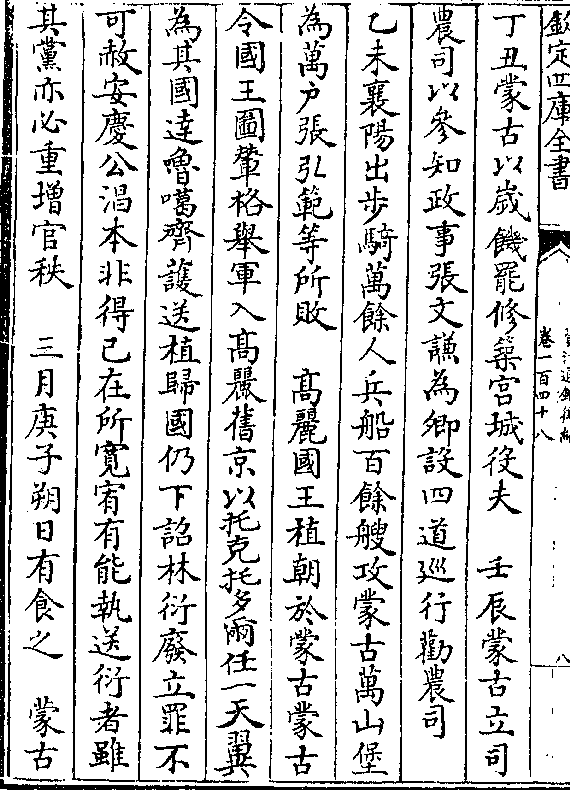 欽定四庫全書
卷一百四十八
八
丁丑蒙古以歲饑罷修築宮城役夫　壬辰蒙古立司
農司以參知政事張文謙為卿設四道巡行勸農司
乙未襄陽出步騎萬餘人兵船百餘艘攻蒙古萬山堡
為萬户張弘範等所敗　高麗國王植朝於蒙古蒙古
令國王圖輦格舉軍入高麗舊京以托克托多爾任一天翼
為其國達嚕噶齊護送植歸國仍下詔林衍廢立罪不
可赦安慶公淐本非得已在所寬宥有能執送衍者雖
其黨亦必重增官秩　三月庚子朔日有食之　蒙古